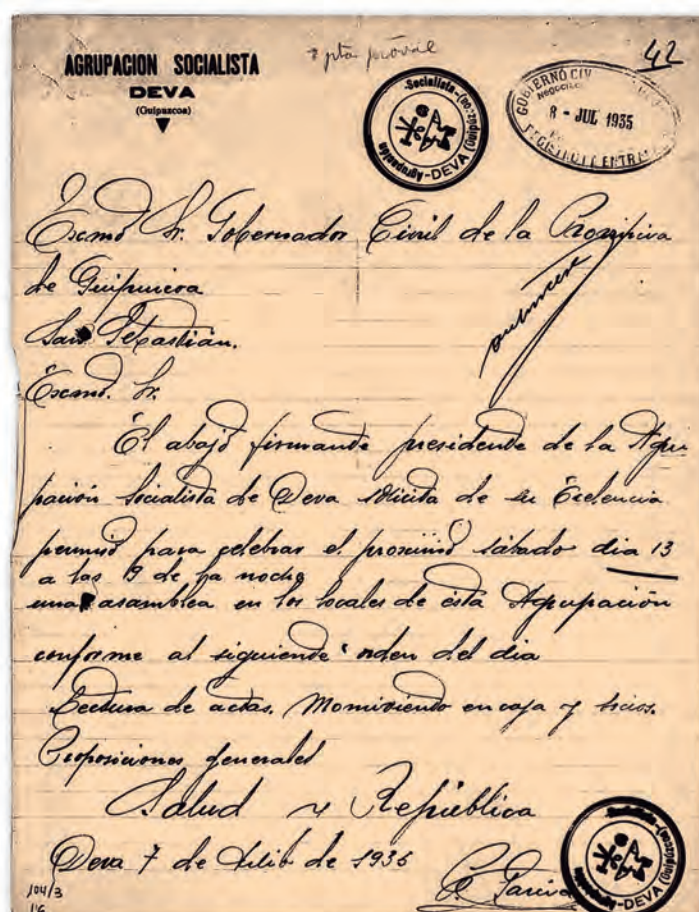 AGRUPACION SOCIALISTA
DEVA
(Guipuzcoa)
42
Socialista-(Guipúzcoa)
Agrupación-DEVA
GOBIERNO CIV
NEGOCIA
8 - JUL 1935
REGISTRO CENTRAL
Excmo Sr. Gobernador Civil de la Provincia
de Guipuzcoa
San Sebastián.
Excmo. Sr.
El abajo firmande presidende de la Agru
pación Socialista de Deva solicita de su Exelencia
permiso para celebrar el proximo sábado dia 13
a las 9 de la noche
una asamblea en los locales de esta Agrupación
conforme al siguiende orden del dia
Lectura de actas. Momiviendo en caja y socios.
Proposiciones generales
Salud y República
Deva 7 de de 1935
Garcia
104/3
116